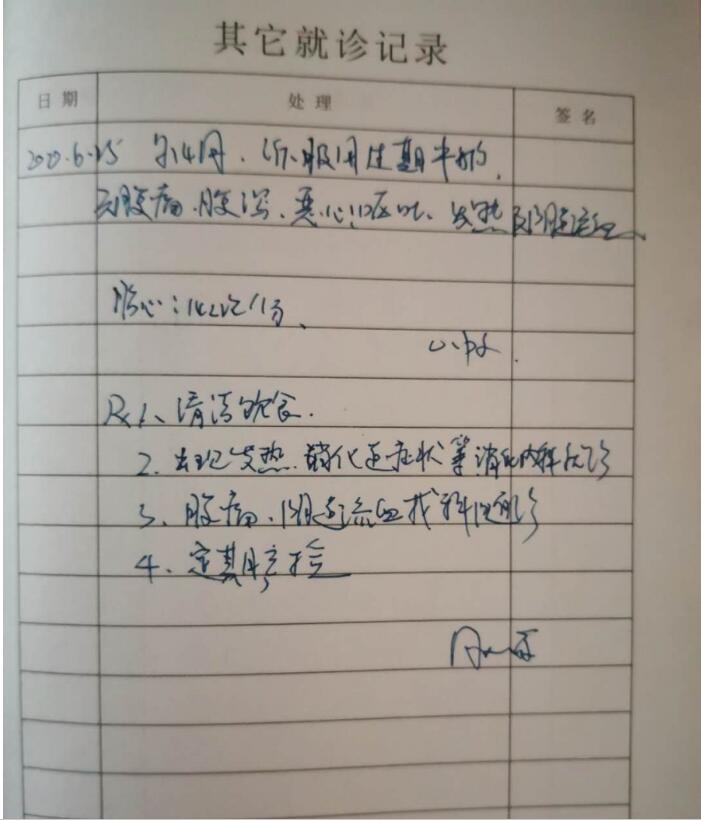 其它就诊记录
日期 处理 签名
2020.6.25 孕4月、诉服用过期牛奶,
无腹痛、腹泻、恶心呕吐、发热及阴道流血
胎心:142次/分、
Rx 1、清洁饮食.
2、出现发热、消化道症状等消化内科就诊
3、腹痛、阴道流血我科随诊
4、定期产检